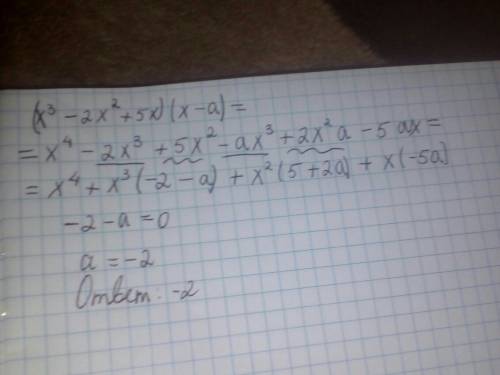 (x³ - 2x² + 5x)(x - a) =
= x⁴ - 2x³ + 5x² - ax³ + 2x²a - 5ax =
= x⁴ + x³(-2 - a) + x²(5 + 2a) + x(-5a)
-2 - a = 0
a = -2
Ответ: -2